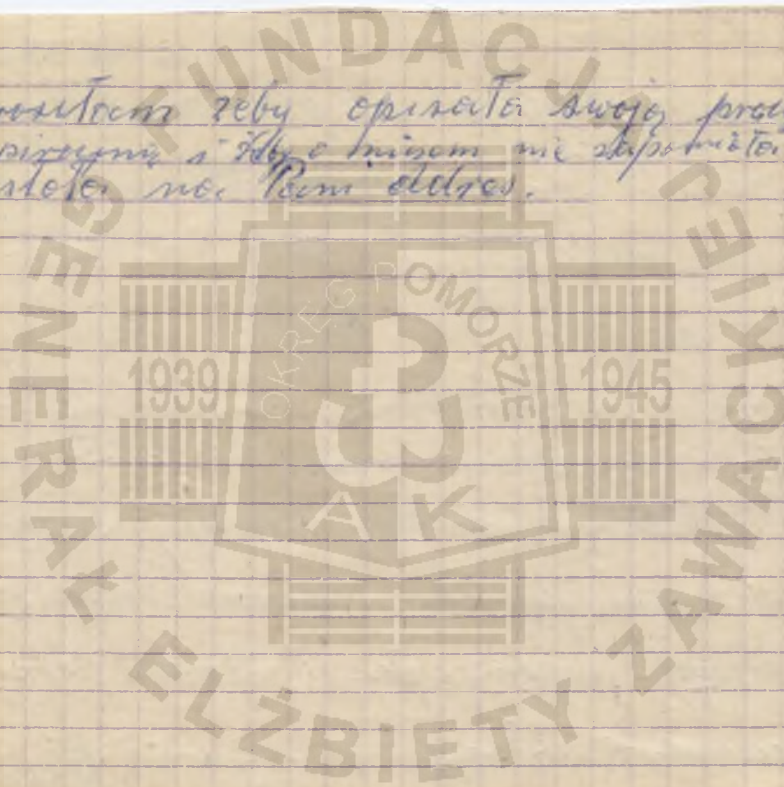 żeby opisała swoją
i żeby o niczem nie zapomniała
na Pani adres.
FUNDACJA GENERAŁ ELŻBIETY ZAWACKIEJ
OKRĘG POMORZE
1939 1945
AK